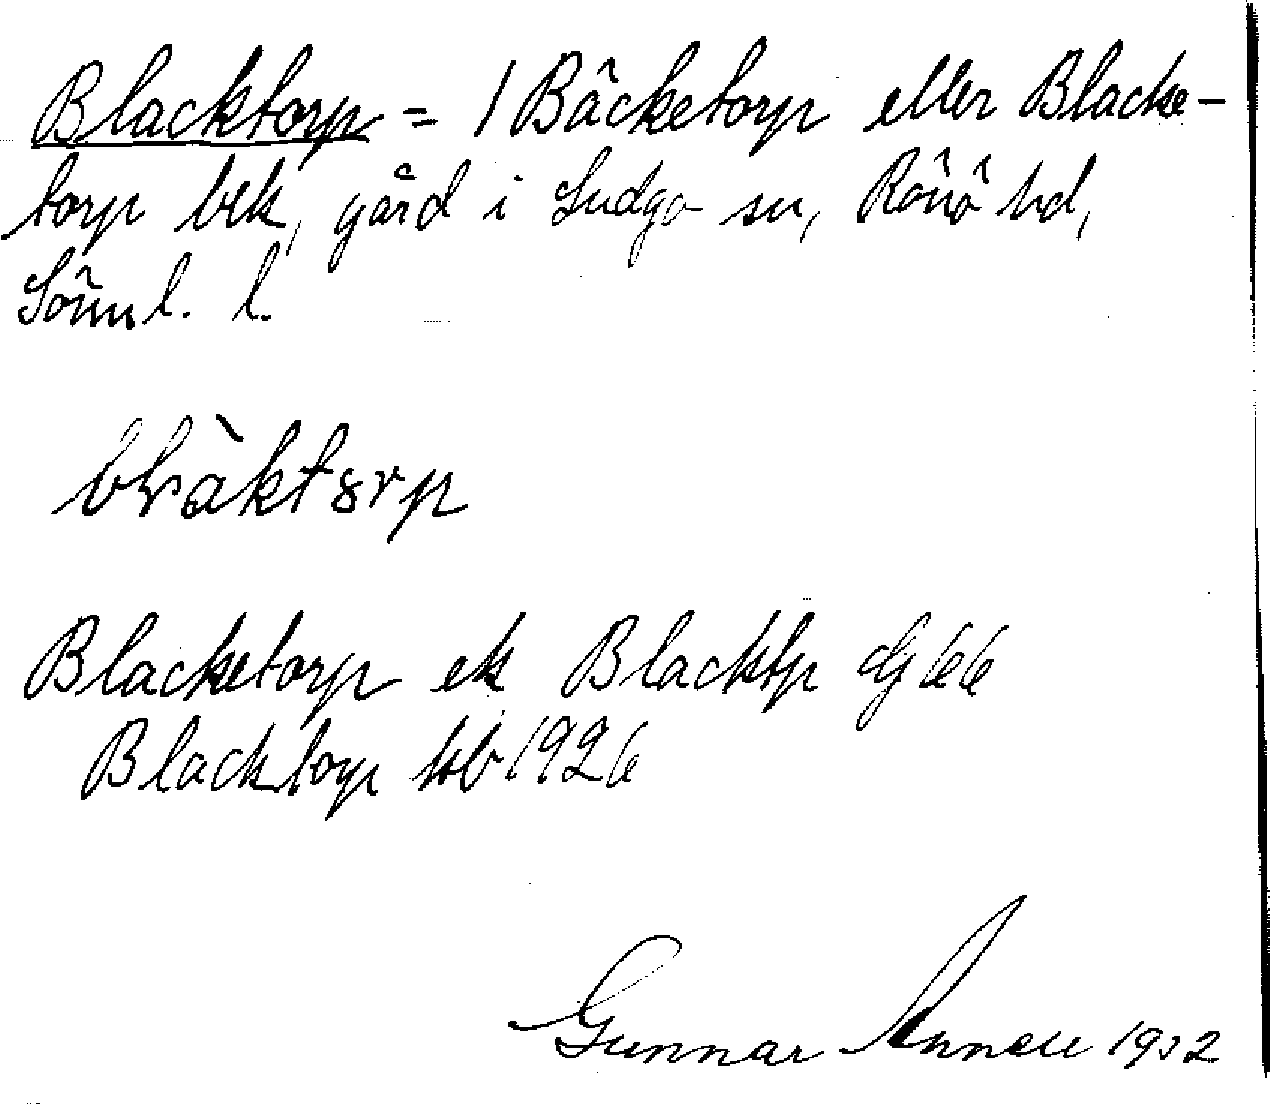 Blacktorp = / Bäcketorp eller Blacke-
torp brk, gård i Ludgo sn, Rönö hd,
Sörml. l.
Blacketorp ek Blacktp Gj 66
Blacktorp kb 1926
Gunnar Annell 1932